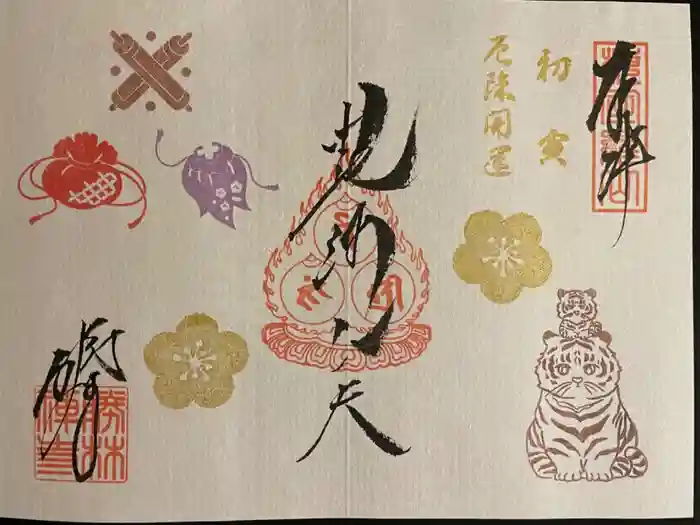 奉拝
初寅
厄除開運
毘沙門天
勝林寺